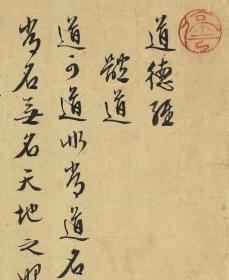 道德經
體道
道可道非常道名
常名無名天地之始